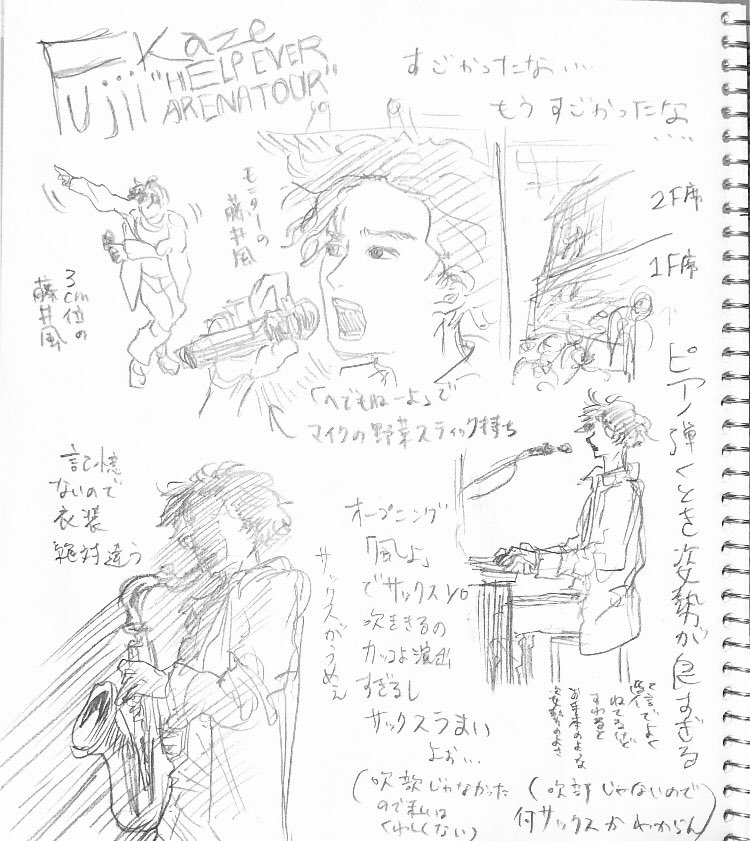 Fujii Kaze
"HELP EVER
ARENA TOUR"
すごかったな…
もうすごかったな
…
2F席
1F席
モニターの
藤井風
3cm位の
藤井風
「へでもねーよ」で
マイクの野菜スティック持ち
ピアノ弾くとき姿勢が良すぎる
記憶
ないので
衣装
絶対違う
オープニング
「風よ」
でサックスソロ
吹ききるの
カッコよ演出
すぎるし
サックスうまい
よぉ…
サックスがうめぇ
ねてるけど
すわると
お手本のような
(吹部じゃなかった
ので私は
くわしくない)
(吹部じゃないので
何サックスかわからん)